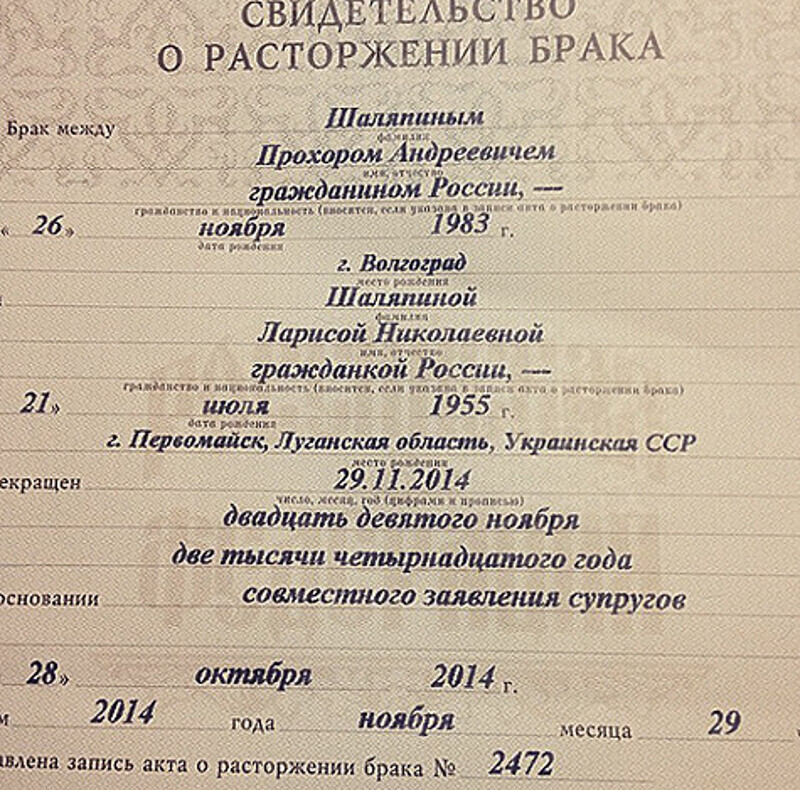 СВИДЕТЕЛЬСТВО
О РАСТОРЖЕНИИ БРАКА
Брак между Шаляпиным
фамилия
Прохором Андреевичем
имя, отчество
гражданином России, —
гражданство и национальность (вносится, если указана в записи акта о расторжении брака)
« 26 » ноября 1983 г.
дата рождения
г. Волгоград
место рождения
Шаляпиной
фамилия
Ларисой Николаевной
имя, отчество
гражданкой России, —
гражданство и национальность (вносится, если указана в записи акта о расторжении брака)
21» июля 1955 г.
дата рождения
г. Первомайск, Луганская область, Украинская ССР
место рождения
екращен 29.11.2014
число, месяц, год (цифрами и прописью)
двадцать девятого ноября
две тысячи четырнадцатого года
основании совместного заявления супругов
28» октября 2014 г.
м 2014 года ноября месяца 29
авлена запись акта о расторжении брака № 2472